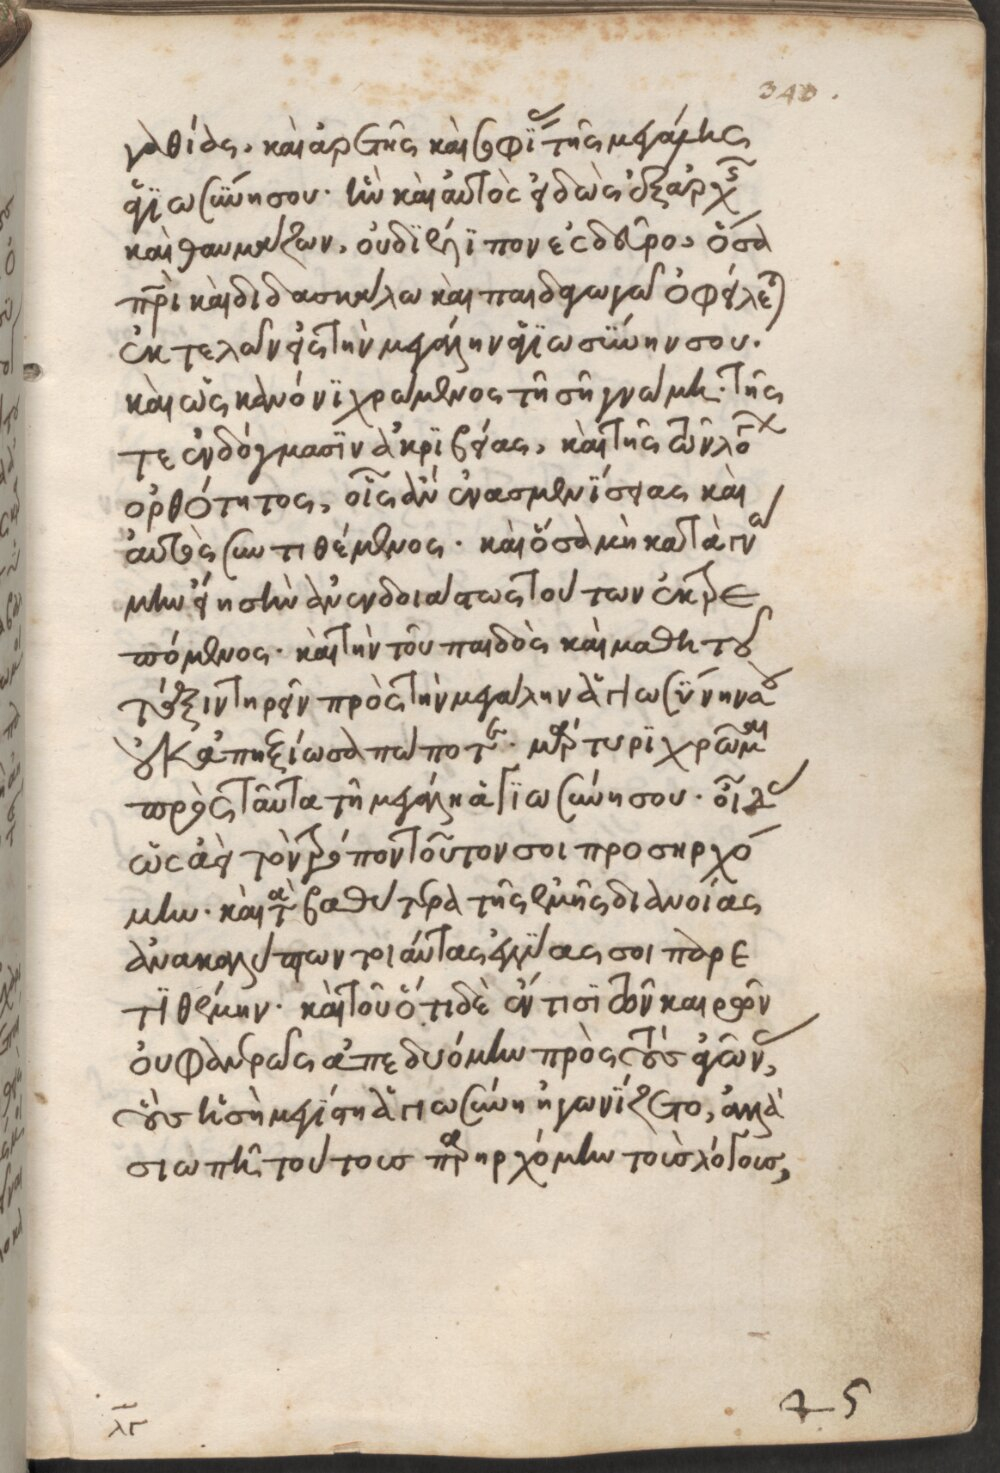 340.
γαθίας. καὶ ἀρετῆς καὶ σοφίας τῆς μεγάλης
ἁγιωσύνης σου. ἣν καὶ αὐτὸς εἰδὼς ἐξ ἀρχῆς
καὶ θαυμάζων, οὐ διέλιπον ἐς δεῦρο, ὅσα
πατρὶ καὶ διδασκάλω καὶ παιδαγωγῶ ὀφείλεται
ἐκτελῶν εἰς τὴν μεγάλην ἁγιωσύνην σου.
καὶ ὡς κανόνι χρώμενος τῆ σῆ γνώμη. τῆς
τε ἐν δόγμασιν ἀκριβείας, καὶ τῆς τῶν λόγων
ὀρθότητος, οἷς ἂν ἐνασμενίσειας καὶ
αὐτὸς συντιθέμενος. καὶ ὅσα μὴ κατὰ γνώ
μην εἴη σὴν ἀνενδοιάστως τούτων ἐκτρε
πόμενος. καὶ τὴν τοῦ παιδὸς καὶ μαθητοῦ
τάξιν τηρεῖν πρὸς τὴν μεγάλην ἁγιωσύνην σου
οὐκ ἀπηξίωσα πώποτε. μάρτυρι χρῶμαι
πρὸς ταῦτα τῆ μεγάλη ἁγιωσύνη σου. οἶδε
ὡς ἀεὶ τὸν τρόπον τοῦτον σοι προσηρχό
μην. καὶ τὰ βαθύτερα τῆς ἐμῆς διανοίας
ἀνακαλύπτων τοιαύτας ἐλπίδας σοι παρε
τιθέμην. καὶ τοῦ ὅτι δὲ ἔν τισι τῶν καιρῶν
οὐ φανερῶς ἀπεδυόμην πρὸς τοὺς ἀγῶνας,
οὓς ἡ σὴ μεγίστη ἁγιωσύνη ἠγωνίζετο, ἀλλὰ
σιωπῆ τούτοις παρηρχόμην τοὺς λόγους,
λϛ